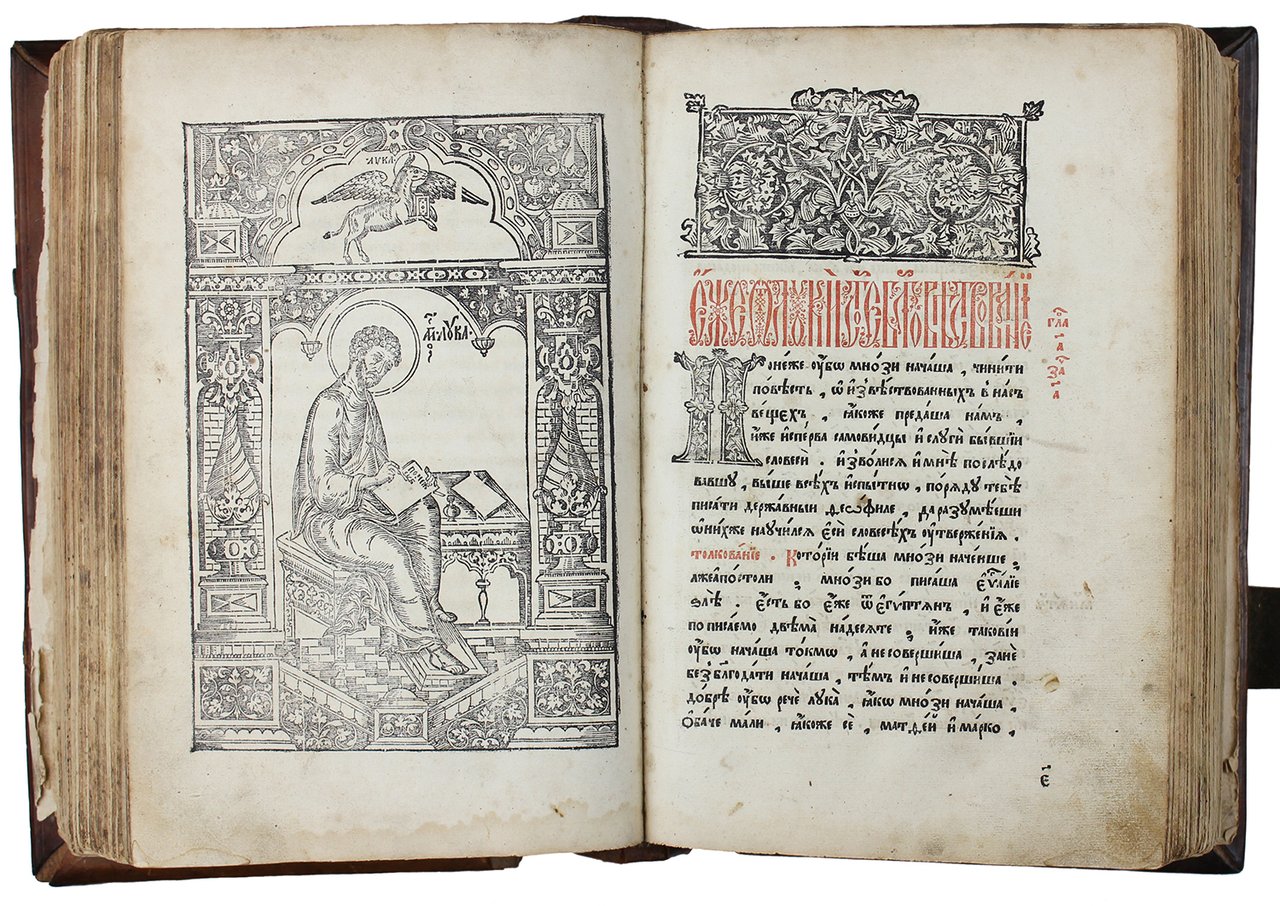 ЛУКА
ЛУКА
Є҆́ЖЕ Ѿ ЛꙊКИ СТО́Е БЛГОВѢСТВОВАНЇЕ
гла҃
а҃
за҃
а҃
Поне́же ᲂу҆́бѡ мно́зи нача́ша , чини́ти
по́вѣсть , ѡ҆ и҆звѣ́ствованныхъ в на́съ
ве́щехъ , ꙗ҆́коже преда́ша на́мъ
и҆̀же и҆спе́рва самови́дцы и҆ слꙋги̑ бы́вшїи
словесѝ . и҆зво́лисѧ и҆ мнѣ̀ послѣ́до
вавшꙋ , вы́ше всѣ́хъ и҆спы́тнѡ , поря́дꙋ тебѣ̀
писа́ти держа́вныи ѳео́филе , да разꙋмѣ́еши
ѡ҆ ни́хже наꙋчи́лсѧ є҆сѝ словесѣ́хъ ᲂу҆твержде́нїѧ .
толкова́нїе . Кото́рїи бѣ́ша мно́зи наче́нше ,
лжеапо́столи , мно́зи бо писа́ша є҆ѵⷢ҇лїе
ѕлѣ̀ . є҆́сть бо є҆́же ѿ є҆гѵ́птѧнъ , и҆ є҆́же
по писаемо двѣма̀ на́десѧте , и҆̀же такові́и
ᲂу҆́бѡ нача́ша то́кмѡ , а҆ не соверши́ша , занѐ
без блгода́ти нача́ша , тѣ́мъ и҆ не соверши́ша .
до́брѣ ᲂу҆́бѡ речѐ лꙋка̀ , ꙗ҆́кѡ мно́зи нача́ша ,
Ѻ҆ба́че ма́ли , ꙗ҆́коже сѐ , матѳе́й и҆ ма́рко ,
є҃